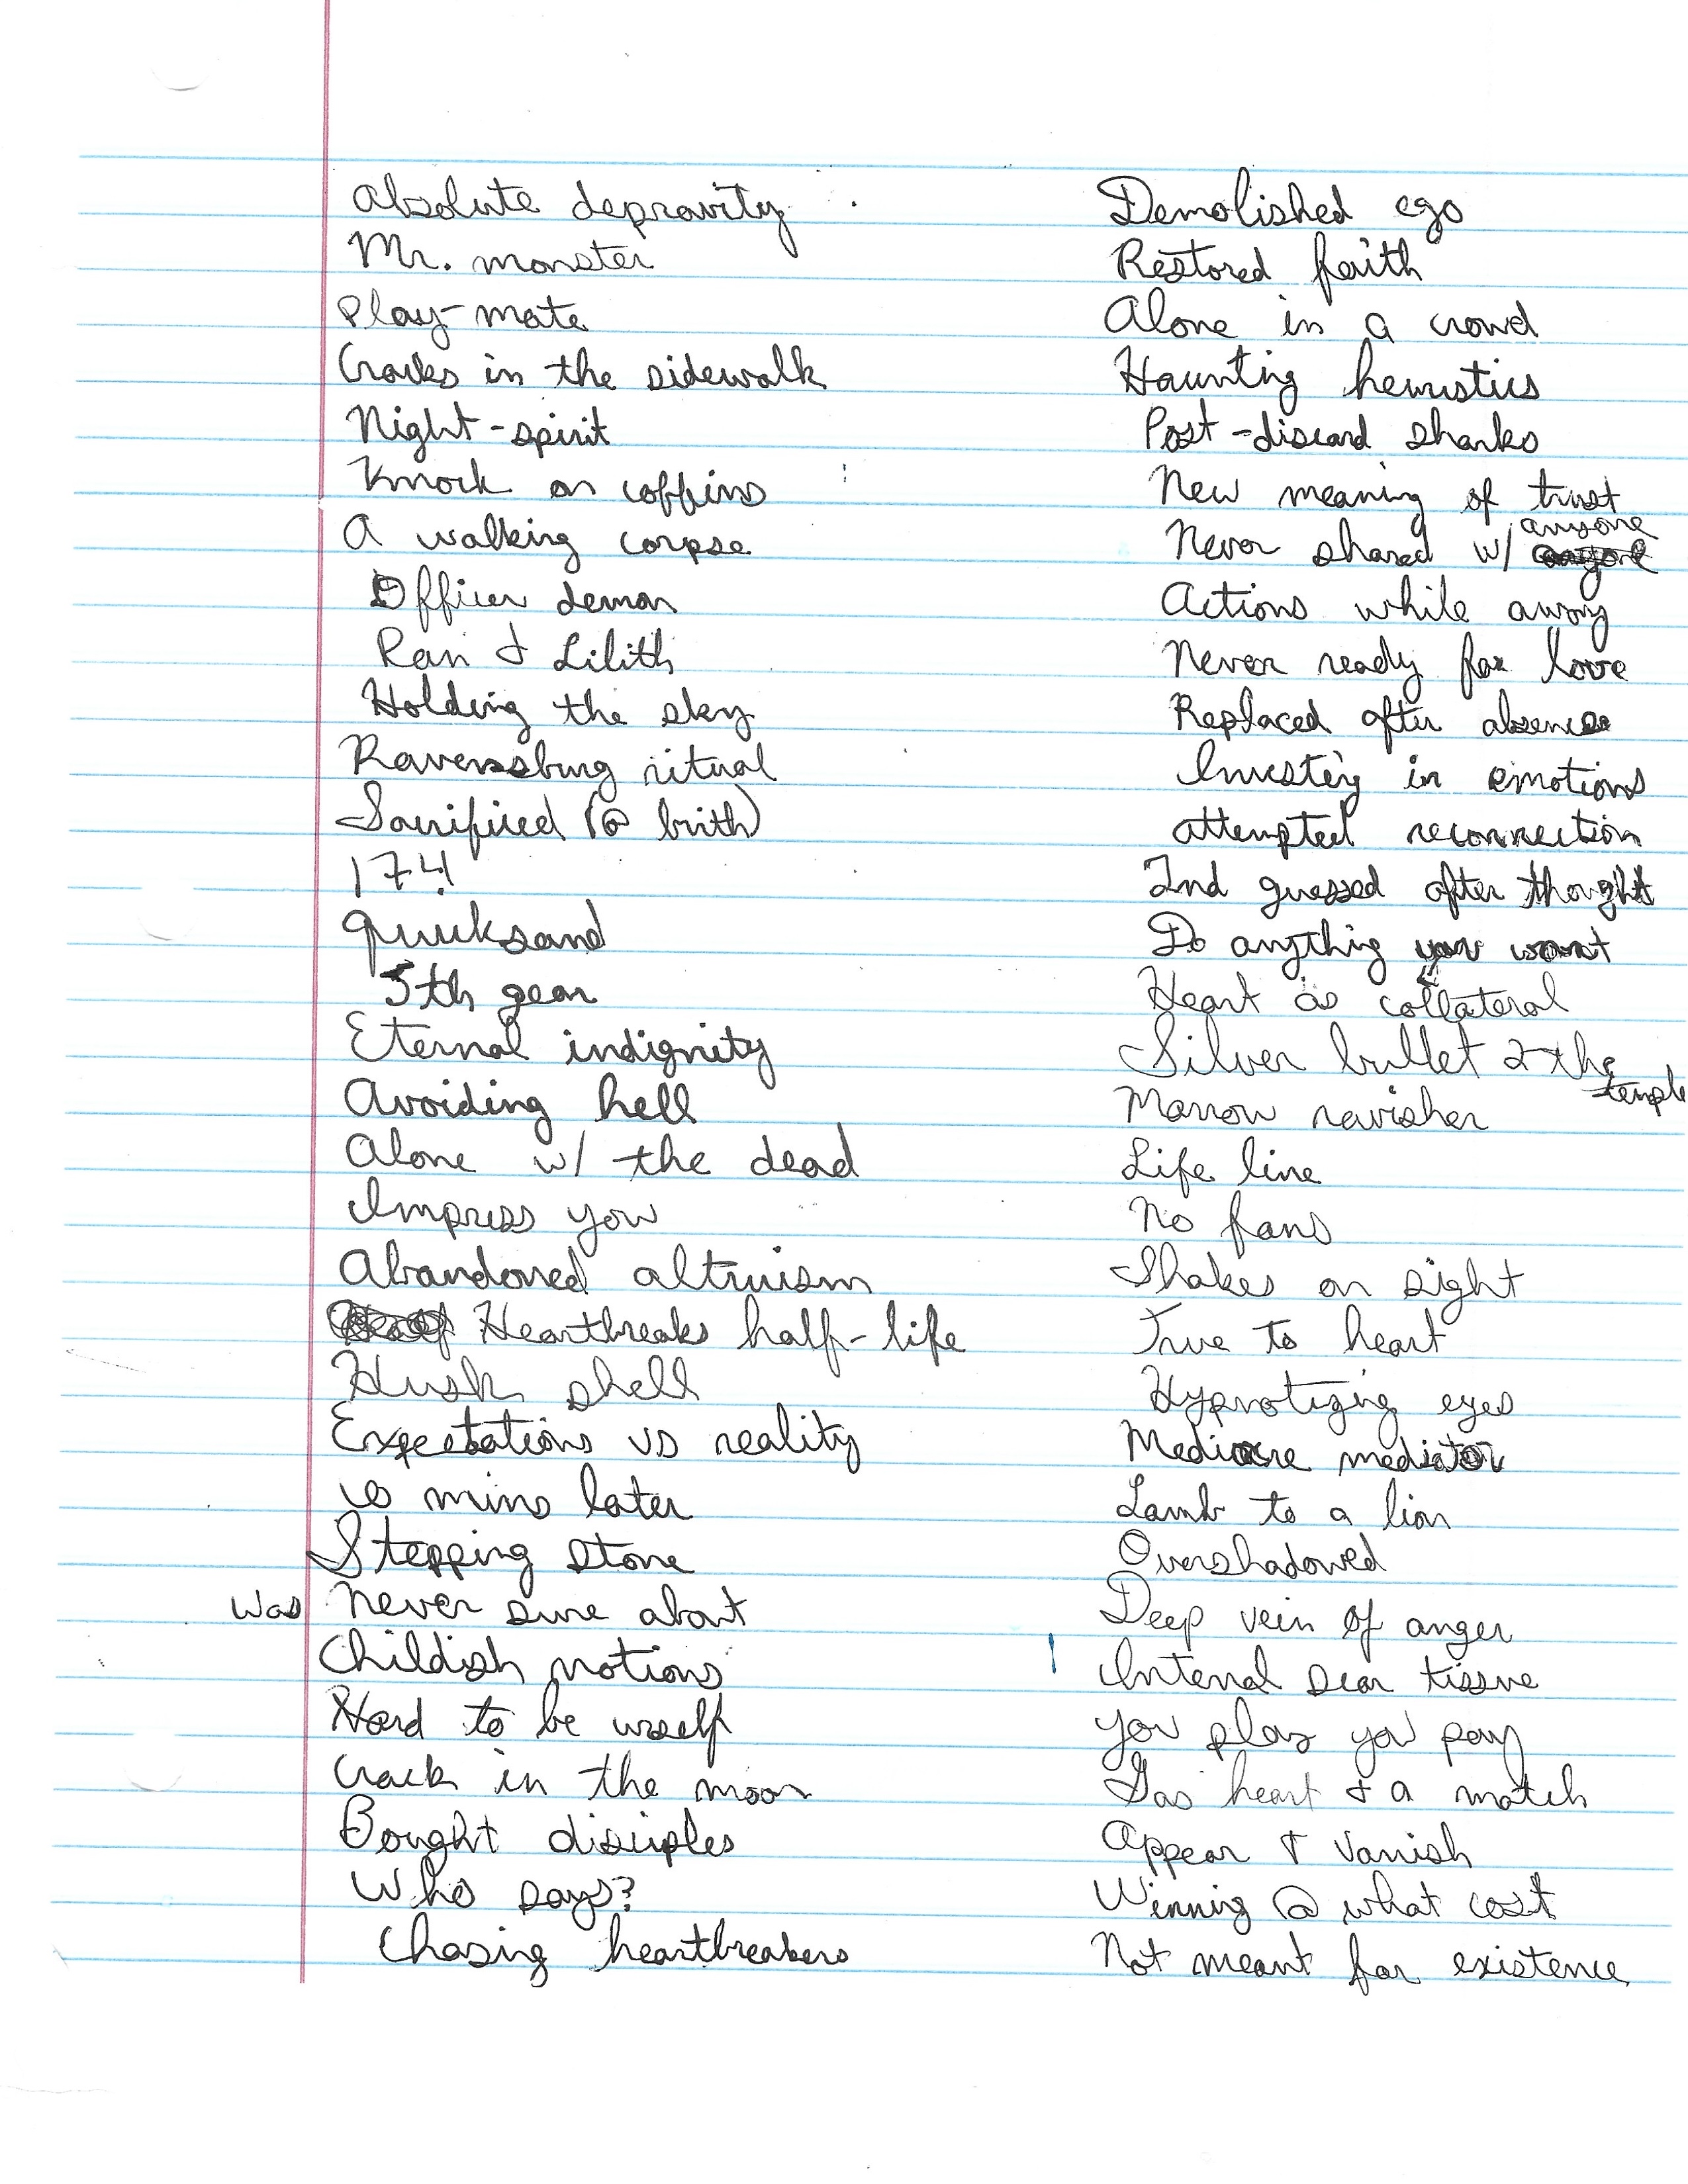 Absolute depravity
Mr. monster
Play-mate
Cracks in the sidewalk
Night-spirit
Knock on coffins
A walking corpse
Officer demon
Ran & Lilith
Holding the sky
Ravensburg ritual
Sacrificed (@ birth)
174
quicksand
5th gear
Eternal indignity
Avoiding hell
Alone w/ the dead
Impress you
Abandoned altruism
Heartbreaks half-life
Husk shell
Expectations vs reality
10 mins later
Stepping stone
Was never sure about
Childish notions
Hard to be urself
Crack in the moon
Bought disciples
Who says?
Chasing heartbreakers
Demolished ego
Restored faith
Alone in a crowd
Haunting
Post-discard sharks
New meaning of trust
Never shared w/ anyone
Actions while away
Never ready for love
Replaced after absence
Investing in emotions
attempted reconnection
2nd guessed after thought
Do anything you want
Heart as collateral
Silver bullet 2 the temple
Marrow ravisher
Life line
No fans
Shakes on sight
True to heart
Hypnotizing eyes
Mediocre mediator
Lamb to a lion
Overshadowed
Deep vein of anger
Internal scar tissue
You play you pay
Gas heart & a match
Appear & Vanish
Winning @ what cost
Not meant for existence